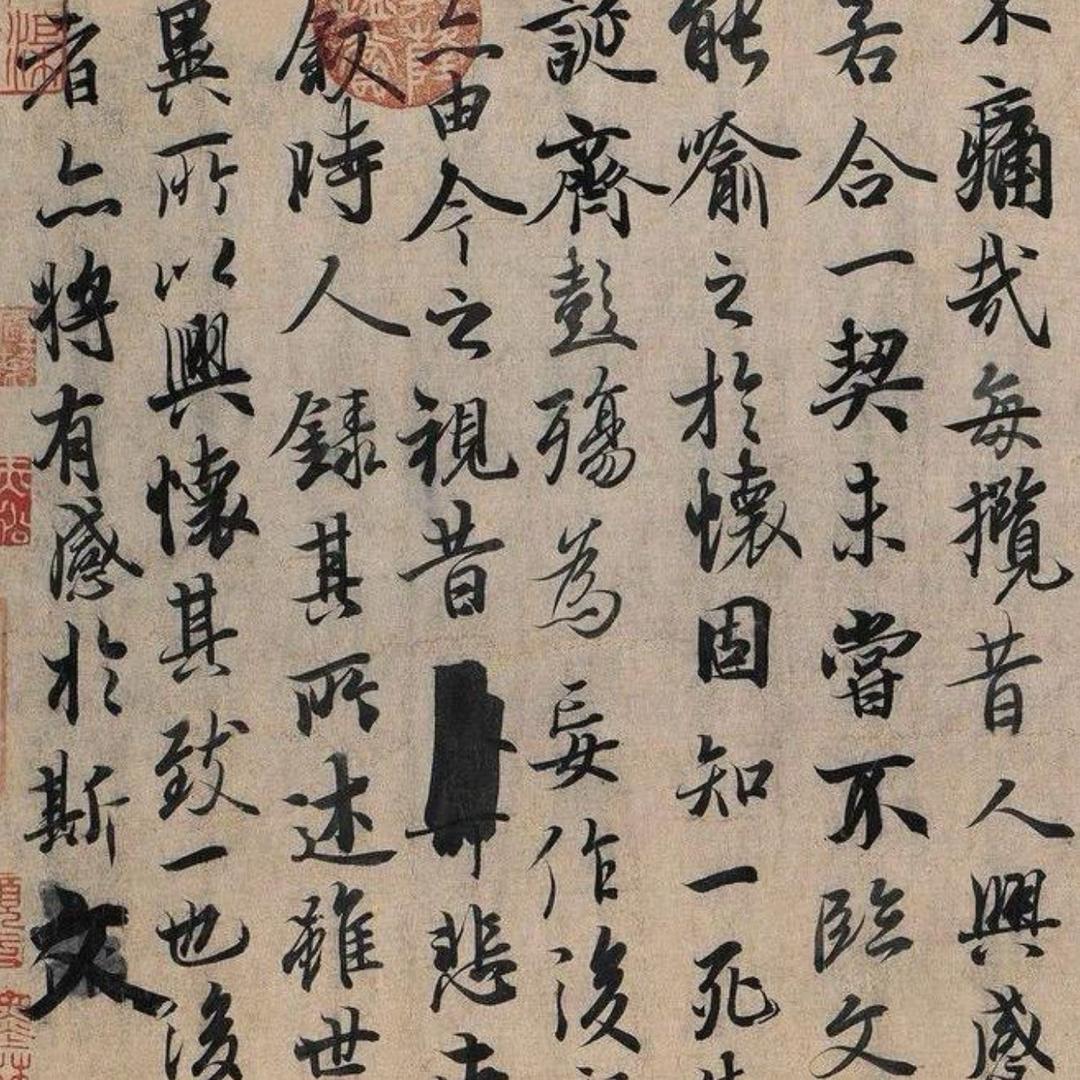 不痛哉每攬昔人興感
若合一契未嘗不臨文
能喻之於懷固知一死
誕齊彭殤為妄作後
亦由今之視昔 悲夫
敘時人錄其所述雖世
異所以興懷其致一也後
者亦將有感於斯文